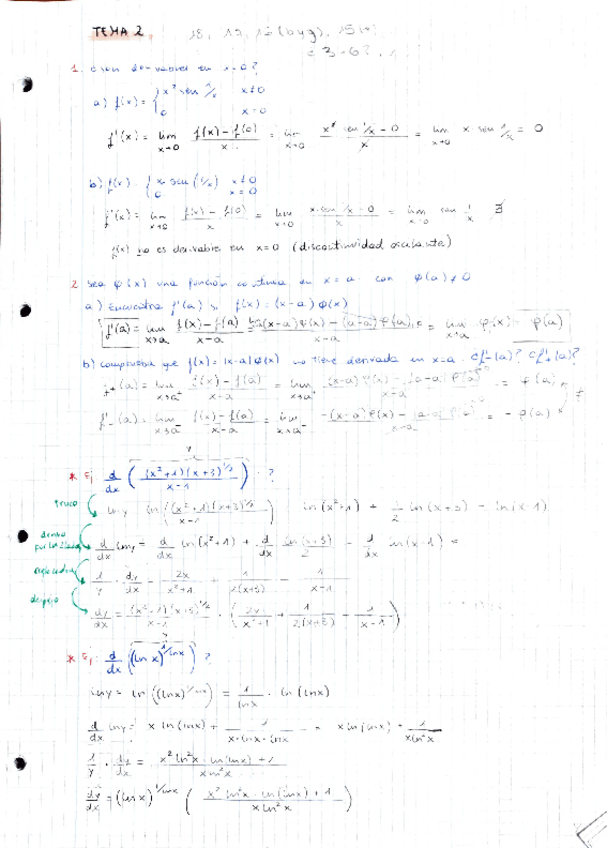 TEMA 2. 18, 19, 12 (b y g), 15
= 3-6?
1. derivables en x=0?
a) f(x) = { x² sen 1/x x≠0
0 x=0
f'(x) = lim x→0 f(x)-f(0) / x = lim x→0 x² sen 1/x - 0 / x = lim x→0 x · sen 1/x = 0
b) f(x) { x · sen (1/x) x≠0
0 x=0
f'(x) = lim x→0 f(x)-f(0) / x = lim x→0 x·sen 1/x - 0 / x = lim x→0 sen 1/x ∄
f(x) no es derivable en x=0 (discontinuidad oscilante)
2 Sea φ(x) una función continua en x=a con φ(a)≠0
a) Encuentra f'(a) si f(x) = (x-a) φ(x)
f'(a) = lim x→a f(x)-f(a) / x-a = lim (x-a)φ(x) - (a-a)φ(a) / x-a = lim x→a φ(x) = φ(a)
b) comprueba que f(x) = |x-a| φ(x) no tiene derivada en x=a. ¿f'₋(a)? ¿f'₊(a)?
f'₊(a) = lim x→a⁺ f(x)-f(a) / x-a = lim x→a⁺ (x-a)φ(x) - (a-a)φ(a) / x-a = φ(a)
≠
f'₋(a) = lim x→a⁻ f(x)-f(a) / x-a = lim x→a⁻ -(x-a)φ(x) - (a-a)φ(a) / x-a = -φ(a)
y
* Ej d/dx ( (x²+1)(x+3)^1/2 / x-1 ) ?
truco ln y ln ( (x²+1)(x+3)^1/2 / x-1 ) ln(x²+1) + 1/2 ln(x+3) - ln(x-1)
d/dx ln y = d/dx ln(x²+1) + d/dx ln(x+3)/2 - d/dx ln(x-1) =
1/y · dy/dx = 2x/x²+1 + 1/2(x+3) - 1/x-1
despejo dy/dx = (x²+1)(x+3)^1/2 / x-1 · ( 2x/x²+1 + 1/2(x+3) - 1/x-1 )
y
* Ej d/dx ( (ln x)^1/ln x ) ?
ln y = ln ( (ln x)^1/ln x ) = 1/ln x · ln (ln x)
d/dx ln y = x ln(ln x) + 1 / x·ln x·ln x = x ln(ln x) + 1 / x ln² x
1/y · dy/dx = x² ln² x · ln(ln x) + 1 / x ln² x
dy/dx = (ln x)^1/ln x ( x² ln² x · ln(ln x) + 1 / x ln² x )